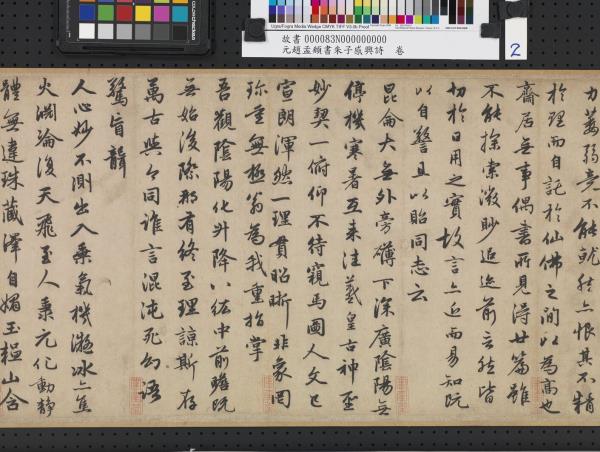 Ugra/Fogra Media Wedge CMYK TIFF V3.0b Proof
故書 000083N000000000
元趙孟頫書朱子感興詩 卷
2
力萎弱竟不能就然亦恨其不精
於理而自託於仙佛之間以為高也
齋居無事偶書所見得廿篇雖
不能探索微眇追迹前言然皆
切於日用之實故言亦近而易知既
以自警且以貽同志云
昆侖大無外旁礴下深廣陰陽無
停機寒暑互来往羲皇古神聖
妙契一俯仰不待窺馬圖人文已
宣朗渾然一理貫昭晰非象罔
珍重無極翁為我重指掌
吾觀陰陽化升降八紘中前瞻既
無始後際那有終至理諒斯存
萬古與今同誰言混沌死幻語
驚盲聾
人心妙不測出入乗氣機凝冰亦焦
火淵淪復天飛至人秉元化動靜
體無違珠藏澤自媚玉韞山含